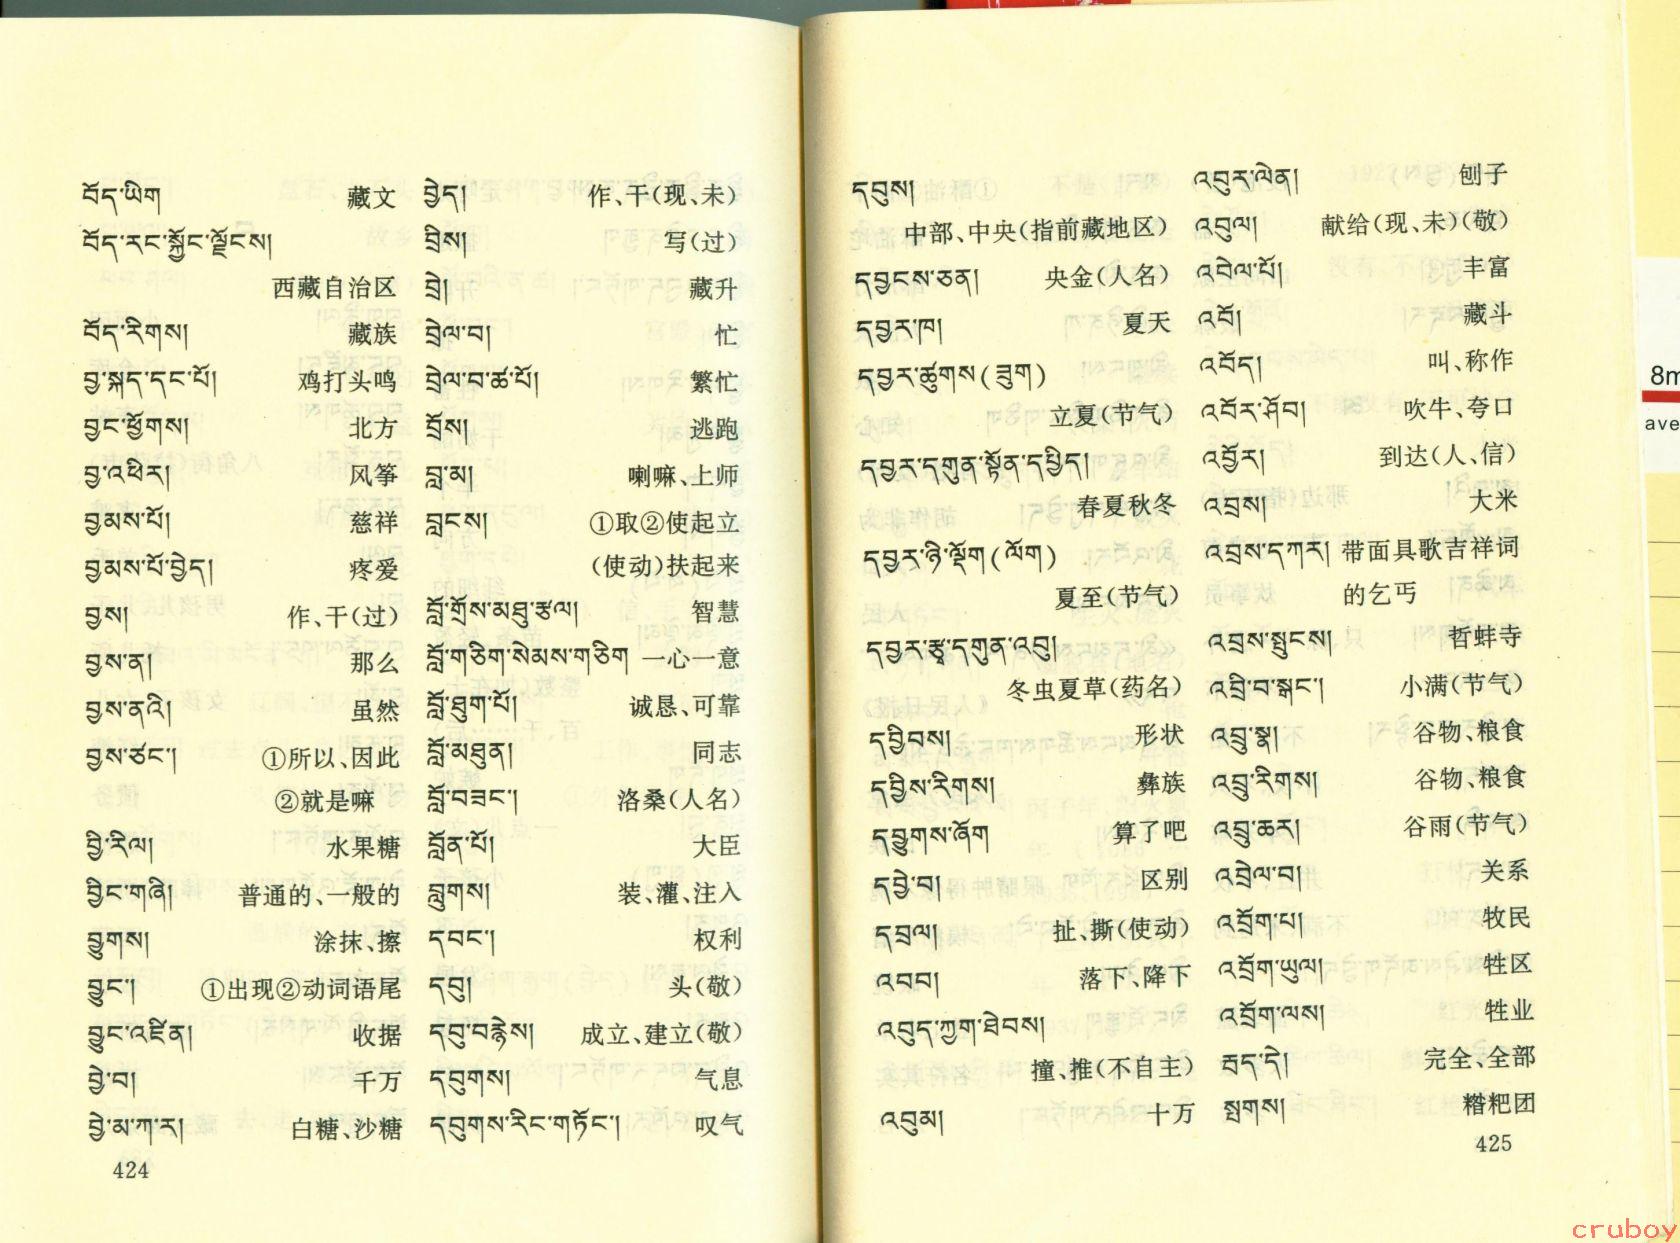 བོད་ཡིག 藏文
བོད་རང་སྐྱོང་ལྗོངས།
西藏自治区
བོད་རིགས། 藏族
བྱ་སྐད་དང་པོ། 鸡打头鸣
བྱང་ཕྱོགས། 北方
བྱ་འཕིར། 风筝
བྱམས་པོ། 慈祥
བྱམས་པོ་བྱེད། 疼爱
བྱས། 作、干(过)
བྱས་ན། 那么
བྱས་ནའི། 虽然
བྱས་ཙང་། ①所以、因此
②就是嘛
བྱི་རིལ། 水果糖
བྱིང་གཞི། 普通的、一般的
བྱུགས། 涂抹、擦
བྱུང་། ①出现②动词语尾
བྱུང་འཛིན། 收据
བྱེ་བ། 千万
བྱེ་མ་ཀ་ར། 白糖、沙糖
424
བྱེད། 作、干(现、未)
བྲིས། 写(过)
བྲེ། 藏升
བྲེལ་བ། 忙
བྲེལ་བ་ཚ་པོ། 繁忙
བྲོས། 逃跑
བླ་མ། 喇嘛、上师
བླངས། ①取②使起立
(使动)扶起来
བློ་གྲོས་མཐུ་རྩལ། 智慧
བློ་གཅིག་སེམས་གཅིག 一心一意
བློ་ཐུག་པོ། 诚恳、可靠
བློ་མཐུན། 同志
བློ་བཟང་། 洛桑(人名)
བློན་པོ། 大臣
བླུགས། 装、灌、注入
དབང་། 权利
དབུ། 头(敬)
དབུ་བརྙེས། 成立、建立(敬)
དབུགས། 气息
དབུགས་རིང་གཏོང་། 叹气
དབུས།
中部、中央(指前藏地区)
དབྱངས་ཅན། 央金(人名)
དབྱར་ཁ། 夏天
དབྱར་ཚུགས(ཟུག)
立夏(节气)
དབྱར་དགུན་སྟོན་དཔྱིད།
春夏秋冬
དབྱར་ཉི་ལྡོག(ལོག)
夏至(节气)
དབྱར་རྩྭ་དགུན་འབུ།
冬虫夏草(药名)
དབྱིབས། 形状
དབྱིས་རིགས། 彝族
དབྱུགས་ཞོག 算了吧
དབྱེ་བ། 区别
དབྲལ། 扯、撕(使动)
འབབ། 落下、降下
འབུད་ཀྱག་ཐེབས།
撞、推(不自主)
འབུམ། 十万
འབུར་ལེན། 刨子
འབུལ། 献给(现、未)(敬)
འབེལ་པོ། 丰富
འབོ། 藏斗
འབོད། 叫、称作
འབོར་ཤོབ། 吹牛、夸口
འབྱོར། 到达(人、信)
འབྲས། 大米
འབྲས་དཀར། 带面具歌吉祥词
的乞丐
འབྲས་སྤུངས། 哲蚌寺
འབྲི་བ་སྒང་། 小满(节气)
འབྲུ་སྣ། 谷物、粮食
འབྲུ་རིགས། 谷物、粮食
འབྲུ་ཆར། 谷雨(节气)
འབྲེལ་བ། 关系
འབྲོག་པ། 牧民
འབྲོག་ཡུལ། 牲区
འབྲོག་ལས། 牲业
རྦད་དེ། 完全、全部
སྤགས། 糌粑团
425
8m
ave
cruboy